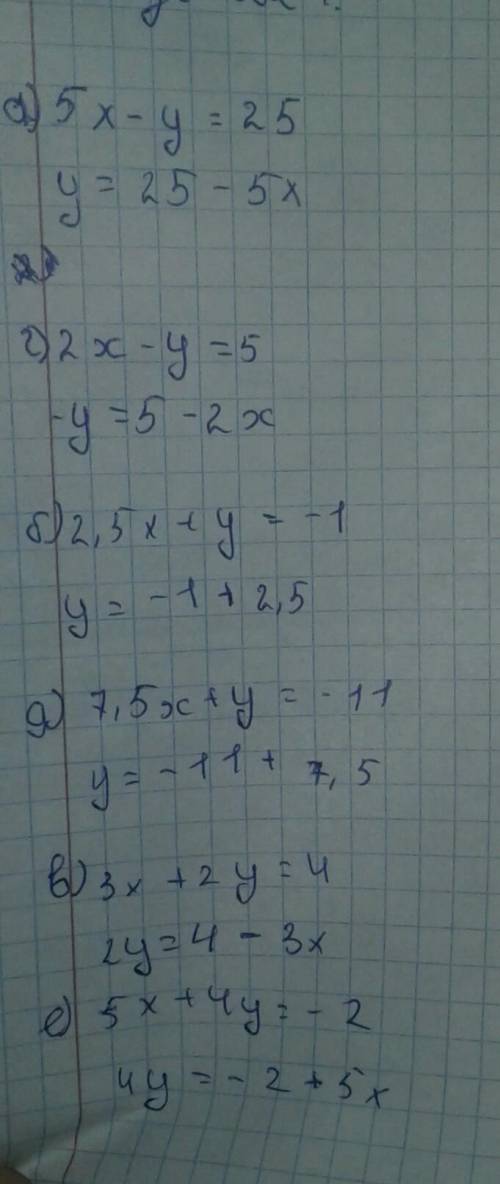 а) 5x - y = 25
y = 25 - 5x
г) 2x - y = 5
-y = 5 - 2x
б) 2,5x + y = -1
y = -1 + 2,5
д) 7,5x + y = -11
y = -11 + 7,5
в) 3x + 2y = 4
2y = 4 - 3x
е) 5x + 4y = -2
4y = -2 + 5x